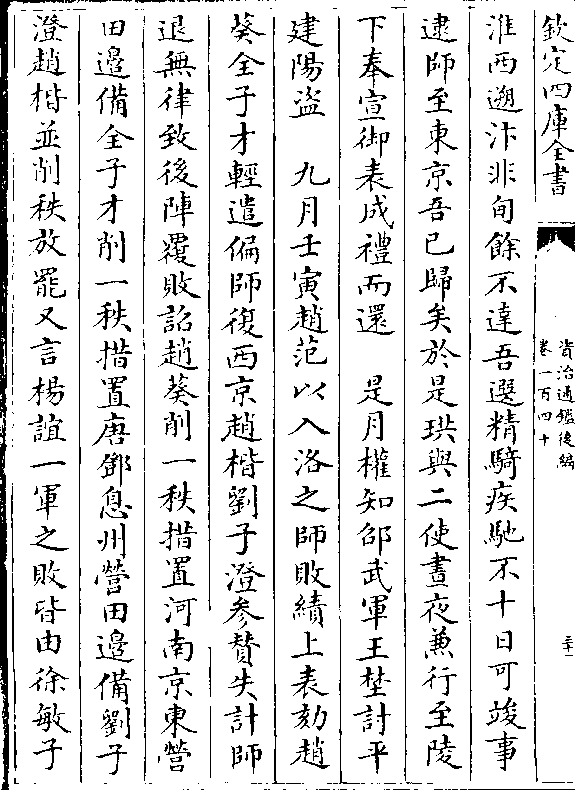 欽定四庫全書
資治通鑑後編
卷一百四十
三十一
淮西遡汴非旬餘不達吾選精騎疾馳不十日可竣事
逮師至東京吾已歸矣於是珙與二使晝夜兼行至陵
下奉宣御表成禮而還　是月權知邵武軍王埜討平
建陽盜　九月壬寅趙范以入洛之師敗績上表劾趙
葵全子才輕遣偏師復西京趙楷劉子澄參贊失計師
退無律致後陣覆敗詔趙葵削一秩措置河南京東營
田邊備全子才削一秩措置唐鄧息州營田邊備劉子
澄趙楷並削秩放罷又言楊誼一軍之敗皆由徐敏子